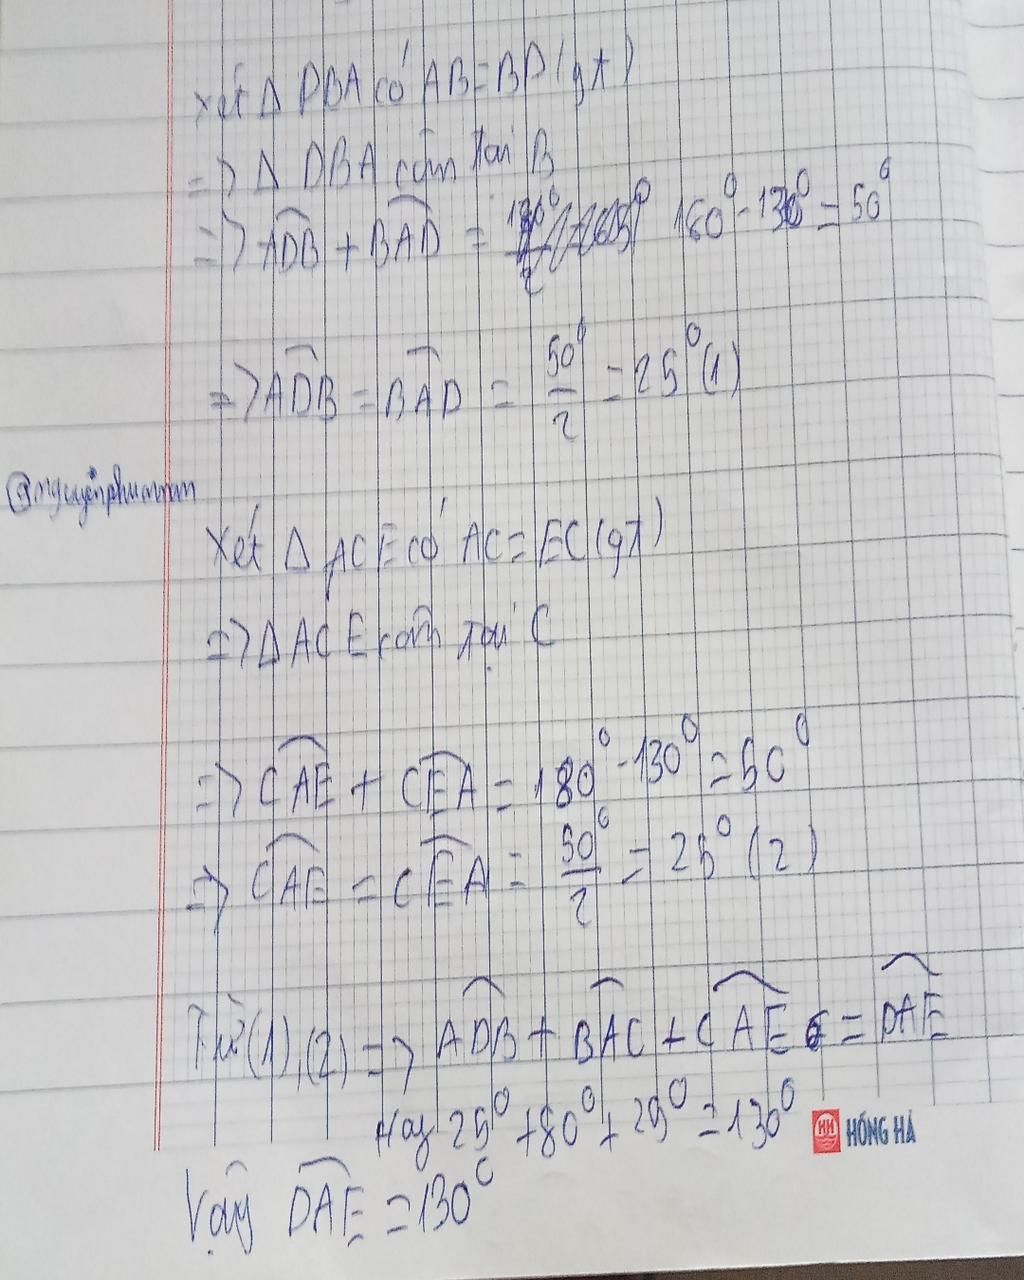 Xét Δ DBA có AB = BD (gt)
=> Δ DBA cân tại B
=> ADB + BAD = 180° - 130° = 50°
=> ADB = BAD = 50°/2 = 25° (1)
@nguyễnphuannn
Xét Δ ACE có AC = EC (gt)
=> Δ ACE cân tại C
=> CAE + CEA = 180° - 130° = 50°
=> CAE = CEA = 50°/2 = 25° (2)
Từ (1), (2) => ADB + BAC + CAE = DAE
Hay 25° + 80° + 25° = 130°
HH HỒNG HÀ
Vậy DAE = 130°